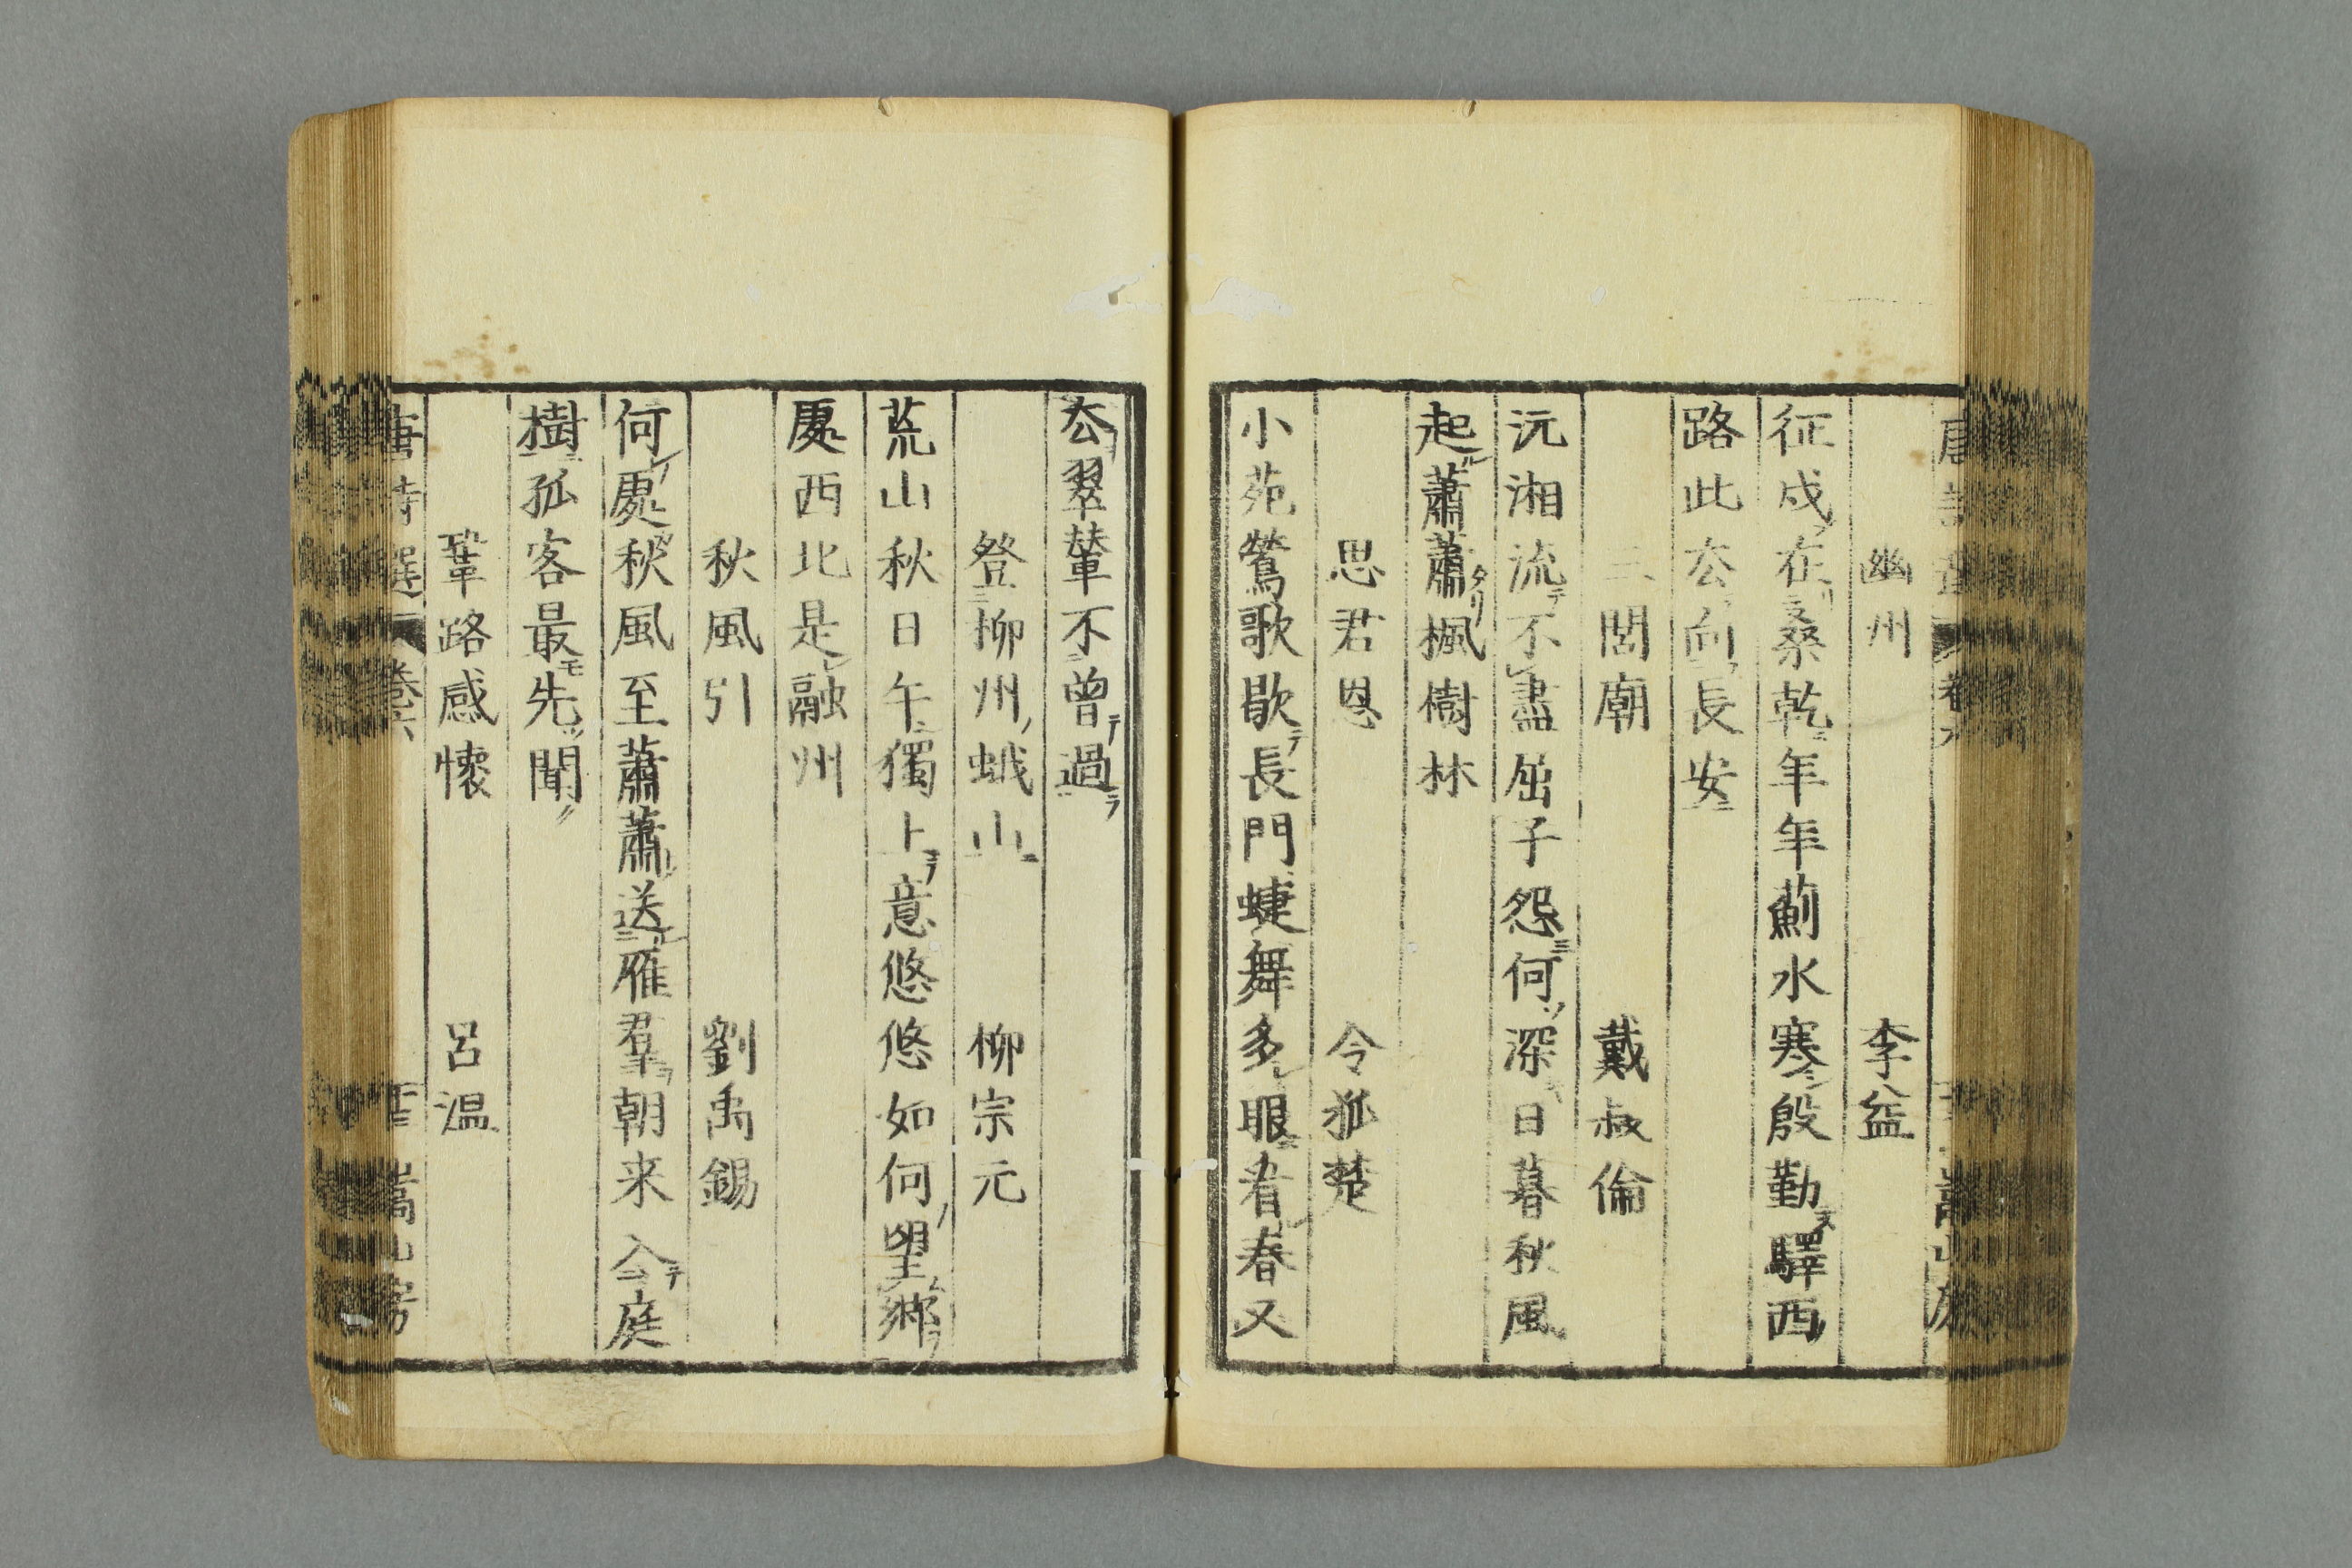 幽州　李益
征戍在桑乾年年薊水寒殷勤驛西
路此去向長安
三閭廟　戴叔倫
沅湘流不盡屈子怨何深日暮秋風
起蕭蕭楓樹林
思君恩　令狐楚
小苑鶯歌歇長門蜨舞多眼看春又
去翠輦不曾過
登柳州蛾山　柳宗元
荒山秋日午獨上意悠悠如何望鄉
處西北是融州
秋風引　劉禹錫
何處秋風至蕭蕭送雁羣朝来入庭
樹孤客最先聞
鞏路感懷　呂温
唐詩選　卷六　嵩山房